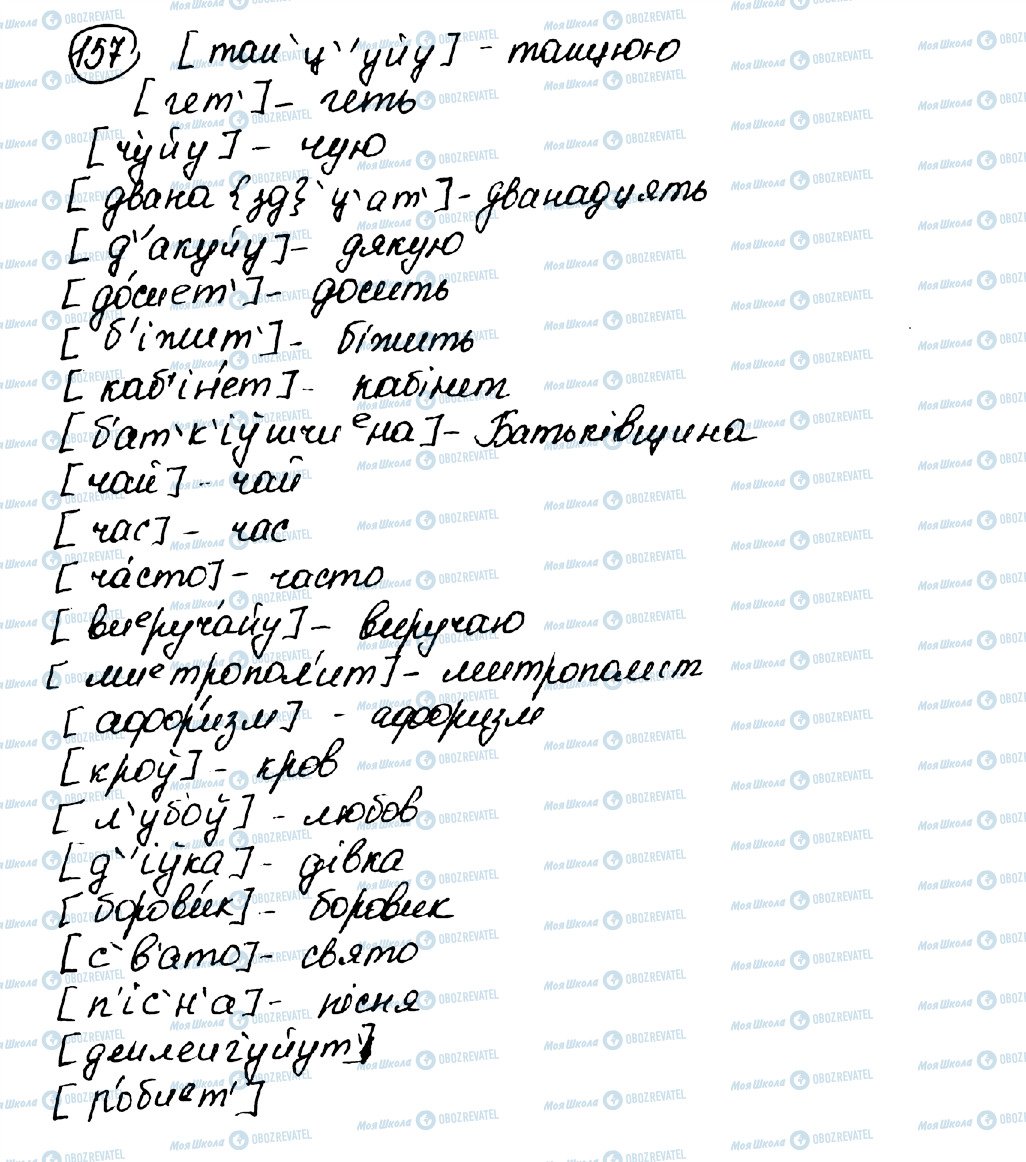 157 [тан`ц`'уйу] - танцюю
[гет`] - геть
[чуйу] - чую
[двана{зд}`ц`ат`] - дванадцять
[д`'акуйу] - дякую
[до́сиет`] - досить
[б'іжит`] - біжить
[каб'іне́т] - кабінет
[бат`к'іўшчиᵉна] - Батьківщина
[чай] - чай
[час] - час
[ча́сто] - часто
[виᵉруча́йу] - виручаю
[миᵉтропол'и́т] - митрополит
[афори́зм] - афоризм
[кроў] - кров
[л`убоў] - любов
[д`'іўка] - дівка
[борови́к] - боровик
[с`в'ато] - свято
[п'іс`н'а] - пісня
[деилеигуйут`]
[ро́биᵉт']